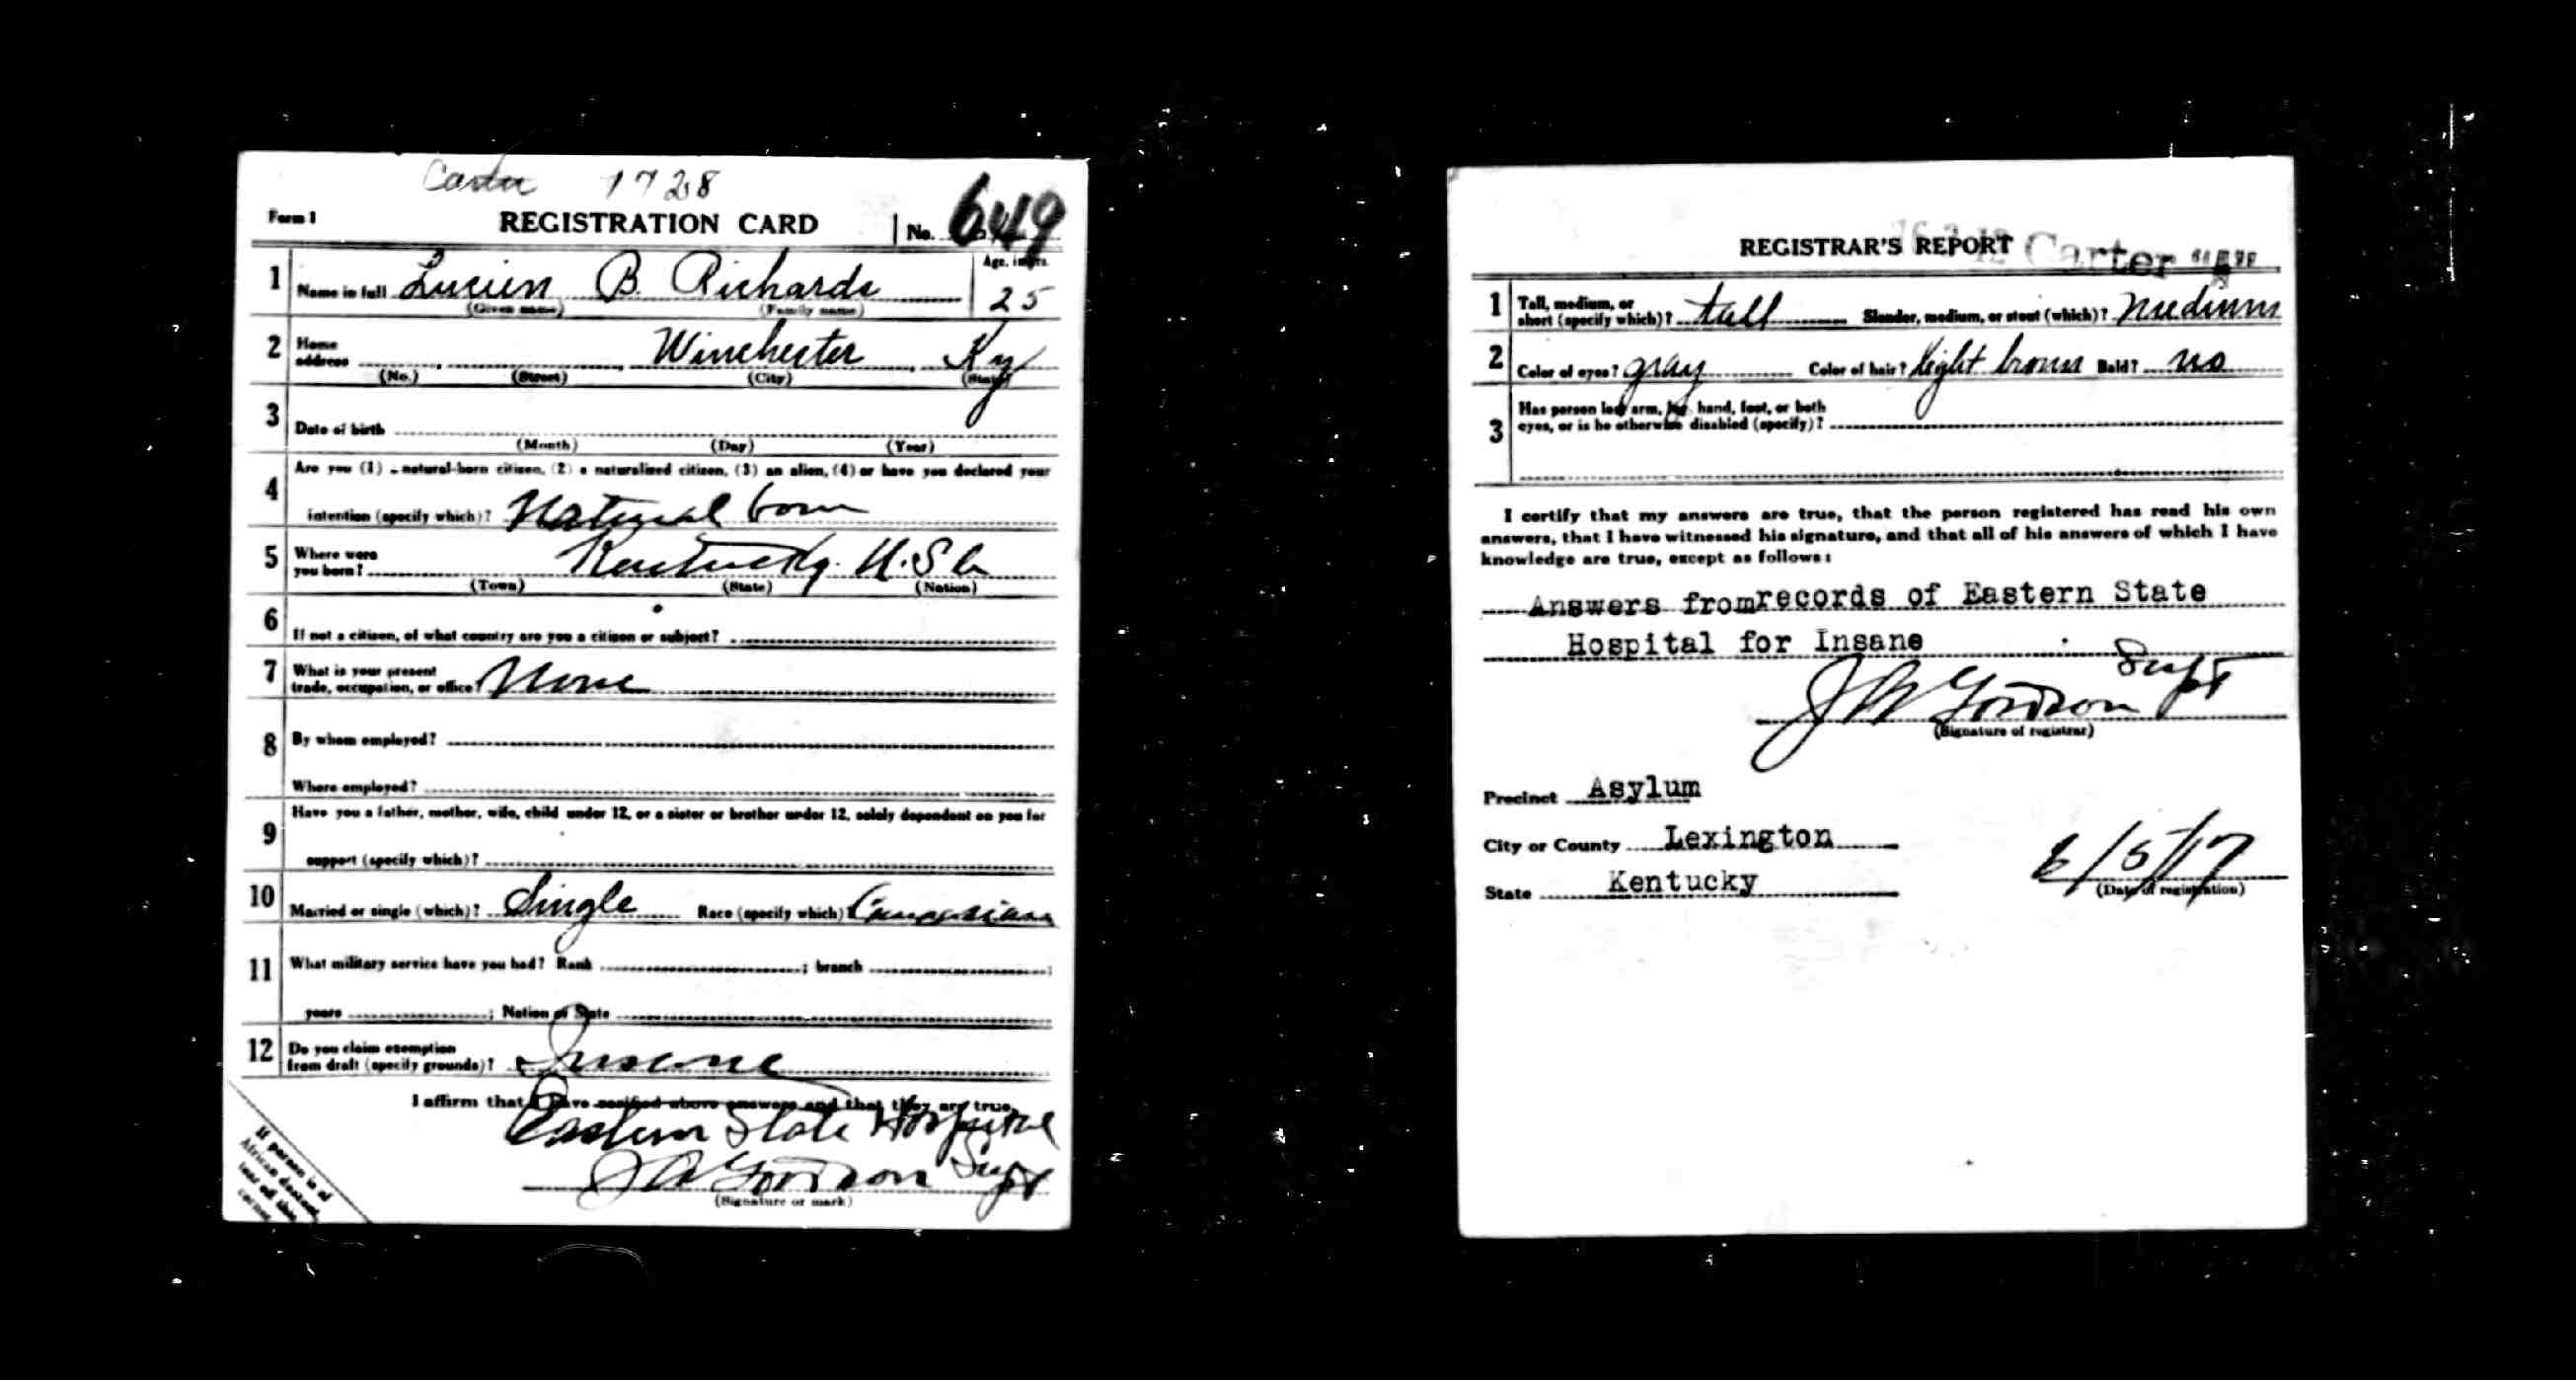 Carter 1728
Form 1 REGISTRATION CARD No. 649
1 Name in full Lucien B. Richards Age, in yrs. 25
(Given name) (Family name)
2 Home address Winchester, Ky
(No.) (Street) (City) (State)
3 Date of birth
(Month) (Day) (Year)
4 Are you (1) a natural-born citizen, (2) a naturalized citizen, (3) an alien, (4) or have you declared your
intention (specify which)? Natural born
5 Where were you born? Kentucky. U.S.A
(Town) (State) (Nation)
6 If not a citizen, of what country are you a citizen or subject?
7 What is your present trade, occupation, or office? None
8 By whom employed?
Where employed?
9 Have you a father, mother, wife, child under 12, or a sister or brother under 12, solely dependent on you for
support (specify which)?
10 Married or single (which)? Single Race (specify which)? Caucasian
11 What military service have you had? Rank ; branch ;
years ; Nation or State
12 Do you claim exemption from draft (specify grounds)? Insane
I affirm that I have verified above answers and that they are true.
Eastern State Hospital
Supt
(Signature or mark)
If person is of
African descent,
tear off this
corner
REGISTRAR'S REPORT Carter
1 Tall, medium, or short (specify which)? tall Slender, medium, or stout (which)? Medium
2 Color of eyes? gray Color of hair? light brown Bald? no
3 Has person lost arm, leg, hand, foot, or both
eyes, or is he otherwise disabled (specify)?
I certify that my answers are true, that the person registered has read his own
answers, that I have witnessed his signature, and that all of his answers of which I have
knowledge are true, except as follows:
Answers from records of Eastern State
Hospital for Insane
Supt
(Signature of registrar)
Precinct Asylum
City or County Lexington
State Kentucky
6/5/17
(Date of registration)